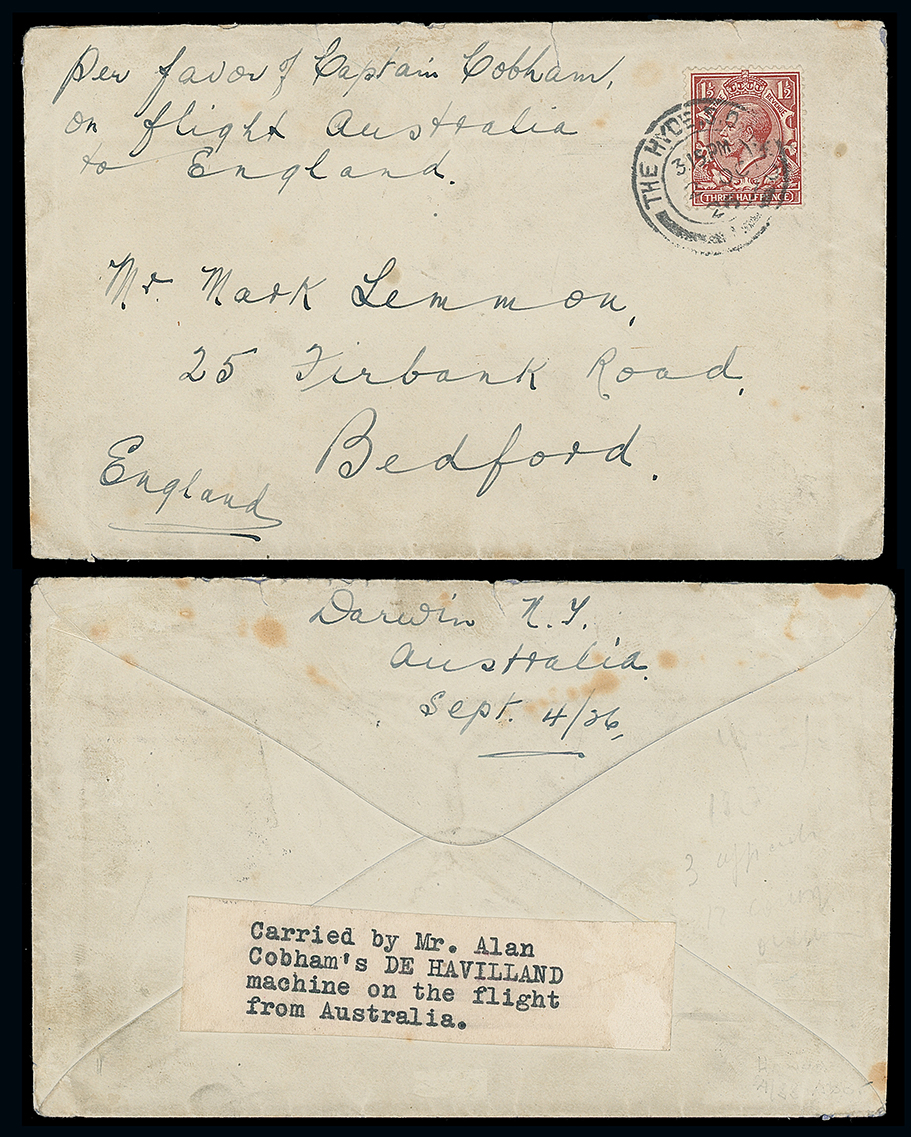 Per favor of Captain Cobham,
on flight Australia
to England.
1½ 1½
THREE HALFPENCE
THE HYDE
3.15 PM
Mr. Mark Lemmon,
25 Firbank Road,
Bedford.
England
Darwin N.T.
Australia.
Sept. 4/26,
Carried by Mr. Alan
Cobham's DE HAVILLAND
machine on the flight
from Australia.